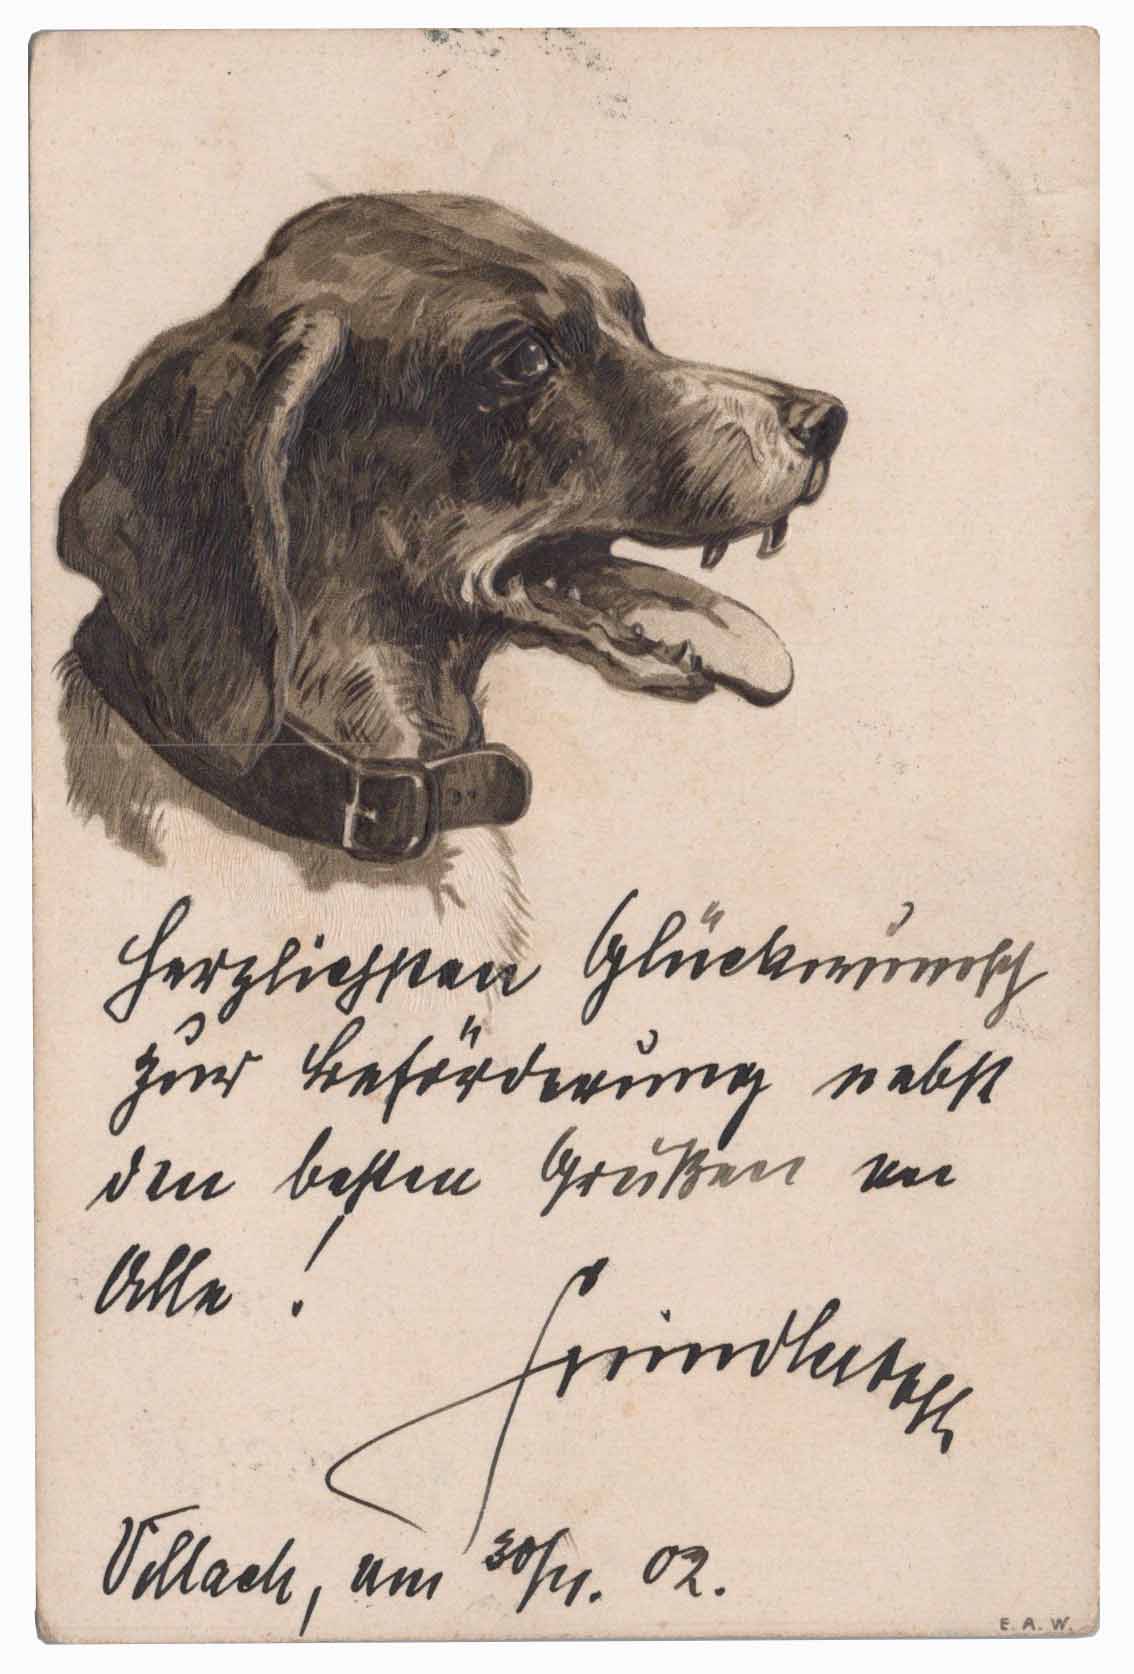 Herzlichsten Glückwunsch
zur Beförderung nebst
den besten Grüßen an
Alle!
Villach, am 30/11. 02.
E. A. W.